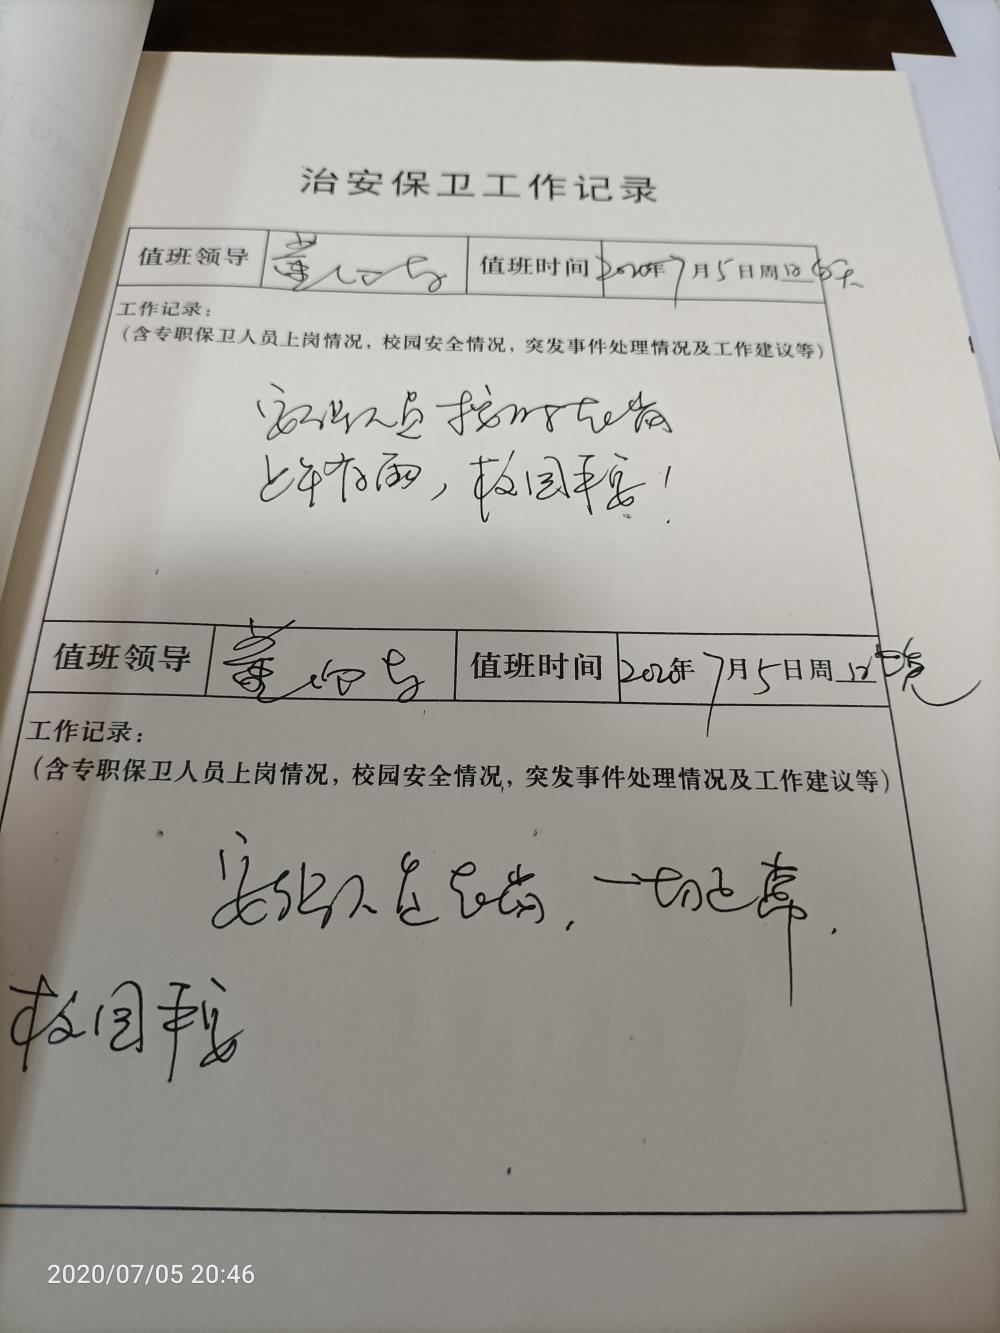 治安保卫工作记录
值班领导 董 值班时间 2020年7月5日周日白天
工作记录：
（含专职保卫人员上岗情况，校园安全情况，突发事件处理情况及工作建议等）
安保人员按时在岗
上午有雨，校园平安！
值班领导 董 值班时间 2020年7月5日周日晚
工作记录：
（含专职保卫人员上岗情况，校园安全情况，突发事件处理情况及工作建议等）
安保人员在岗，一切正常．
校园平安
2020/07/05 20:46